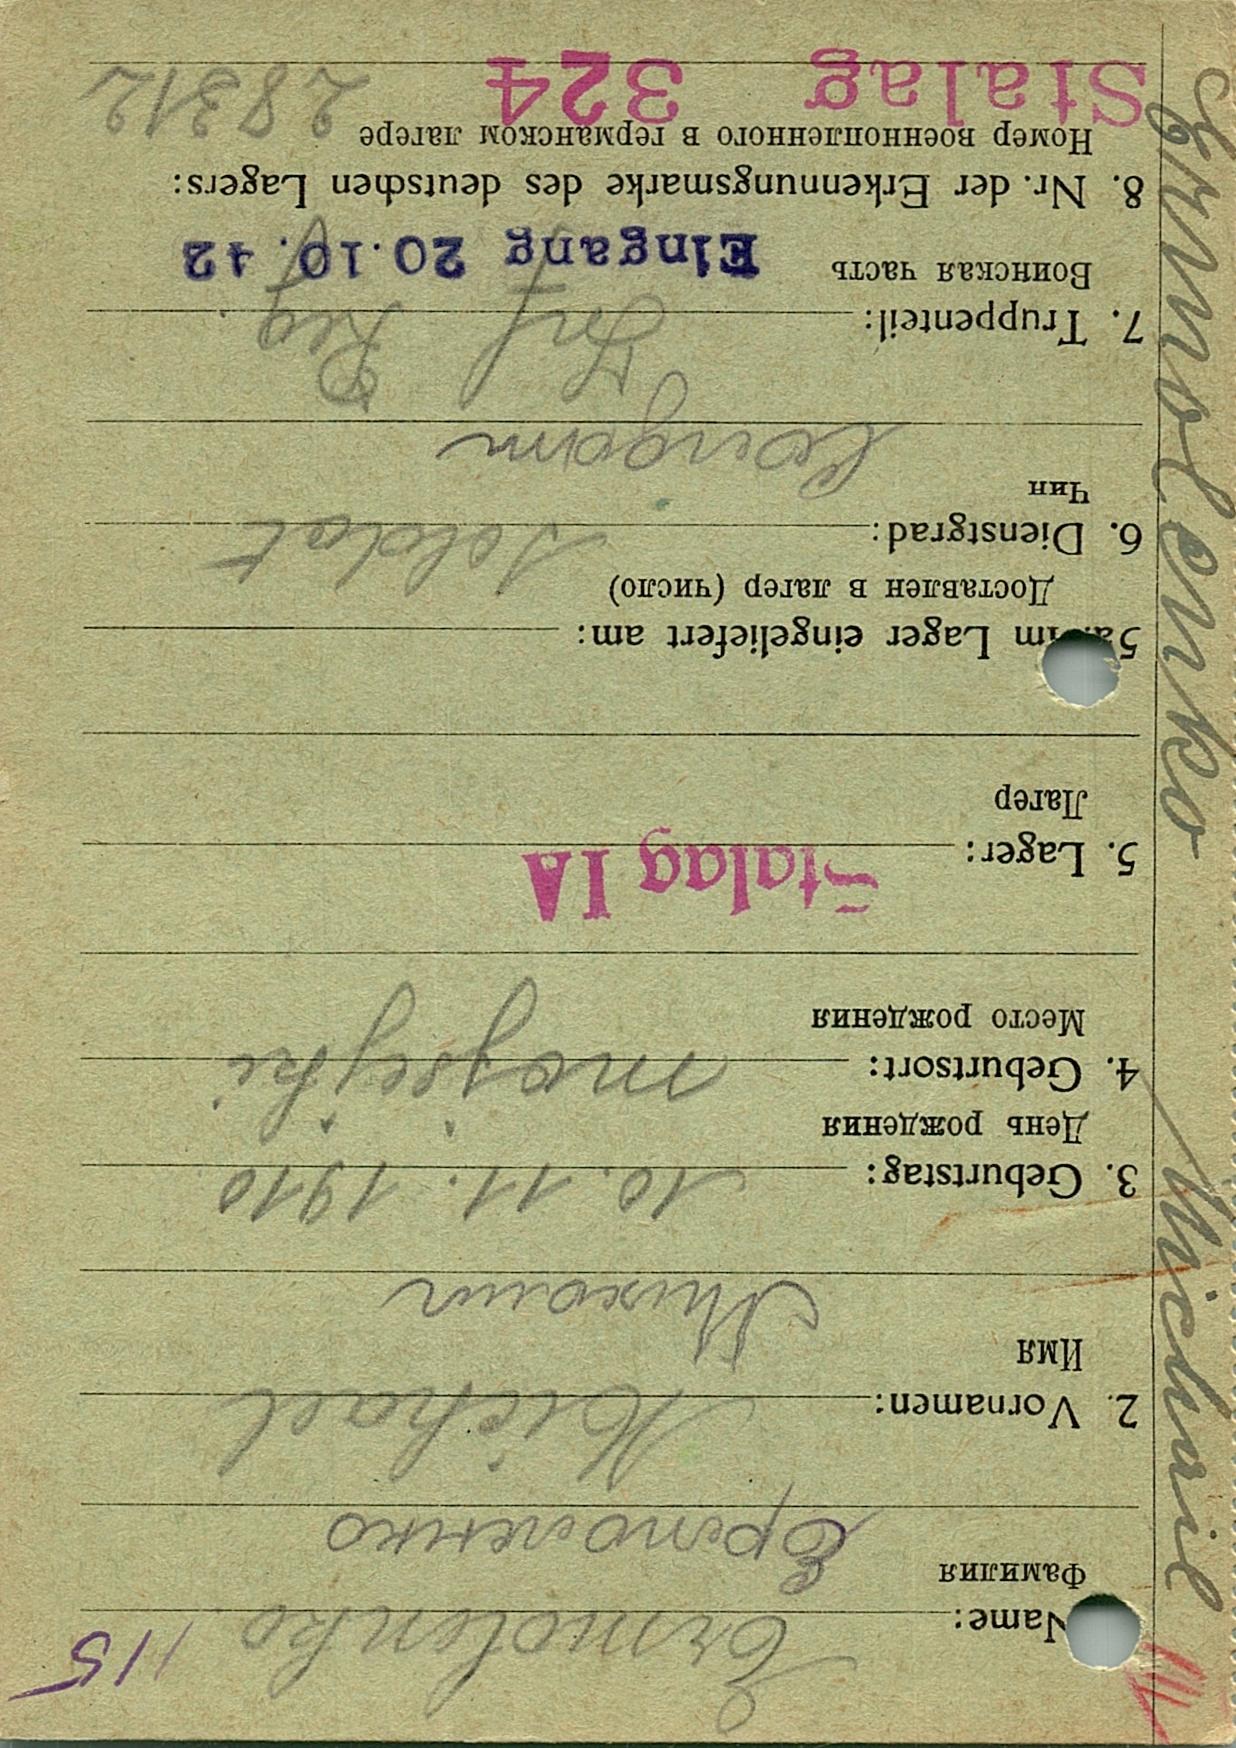 115
Name: Ermolenko
Фамилия
Ермоленко
2. Vornamen: Michael
Имя
Михаил
3. Geburtstag: 10. 11. 1910
День рождения
4. Geburtsort:
Место рождения
Stalag IA
5. Lager:
Лагер
5a. Im Lager eingeliefert am:
Доставлен в лагер (число)
6. Dienstgrad: Soldat
Чин
Солдат
7. Truppenteil: Inf Reg.
Воинская часть Eingang 20.10.42
8. Nr. der Erkennungsmarke des deutschen Lagers:
Номер военнопленного в германском лагере
Stalag 324 28312
Ermolenko Michail